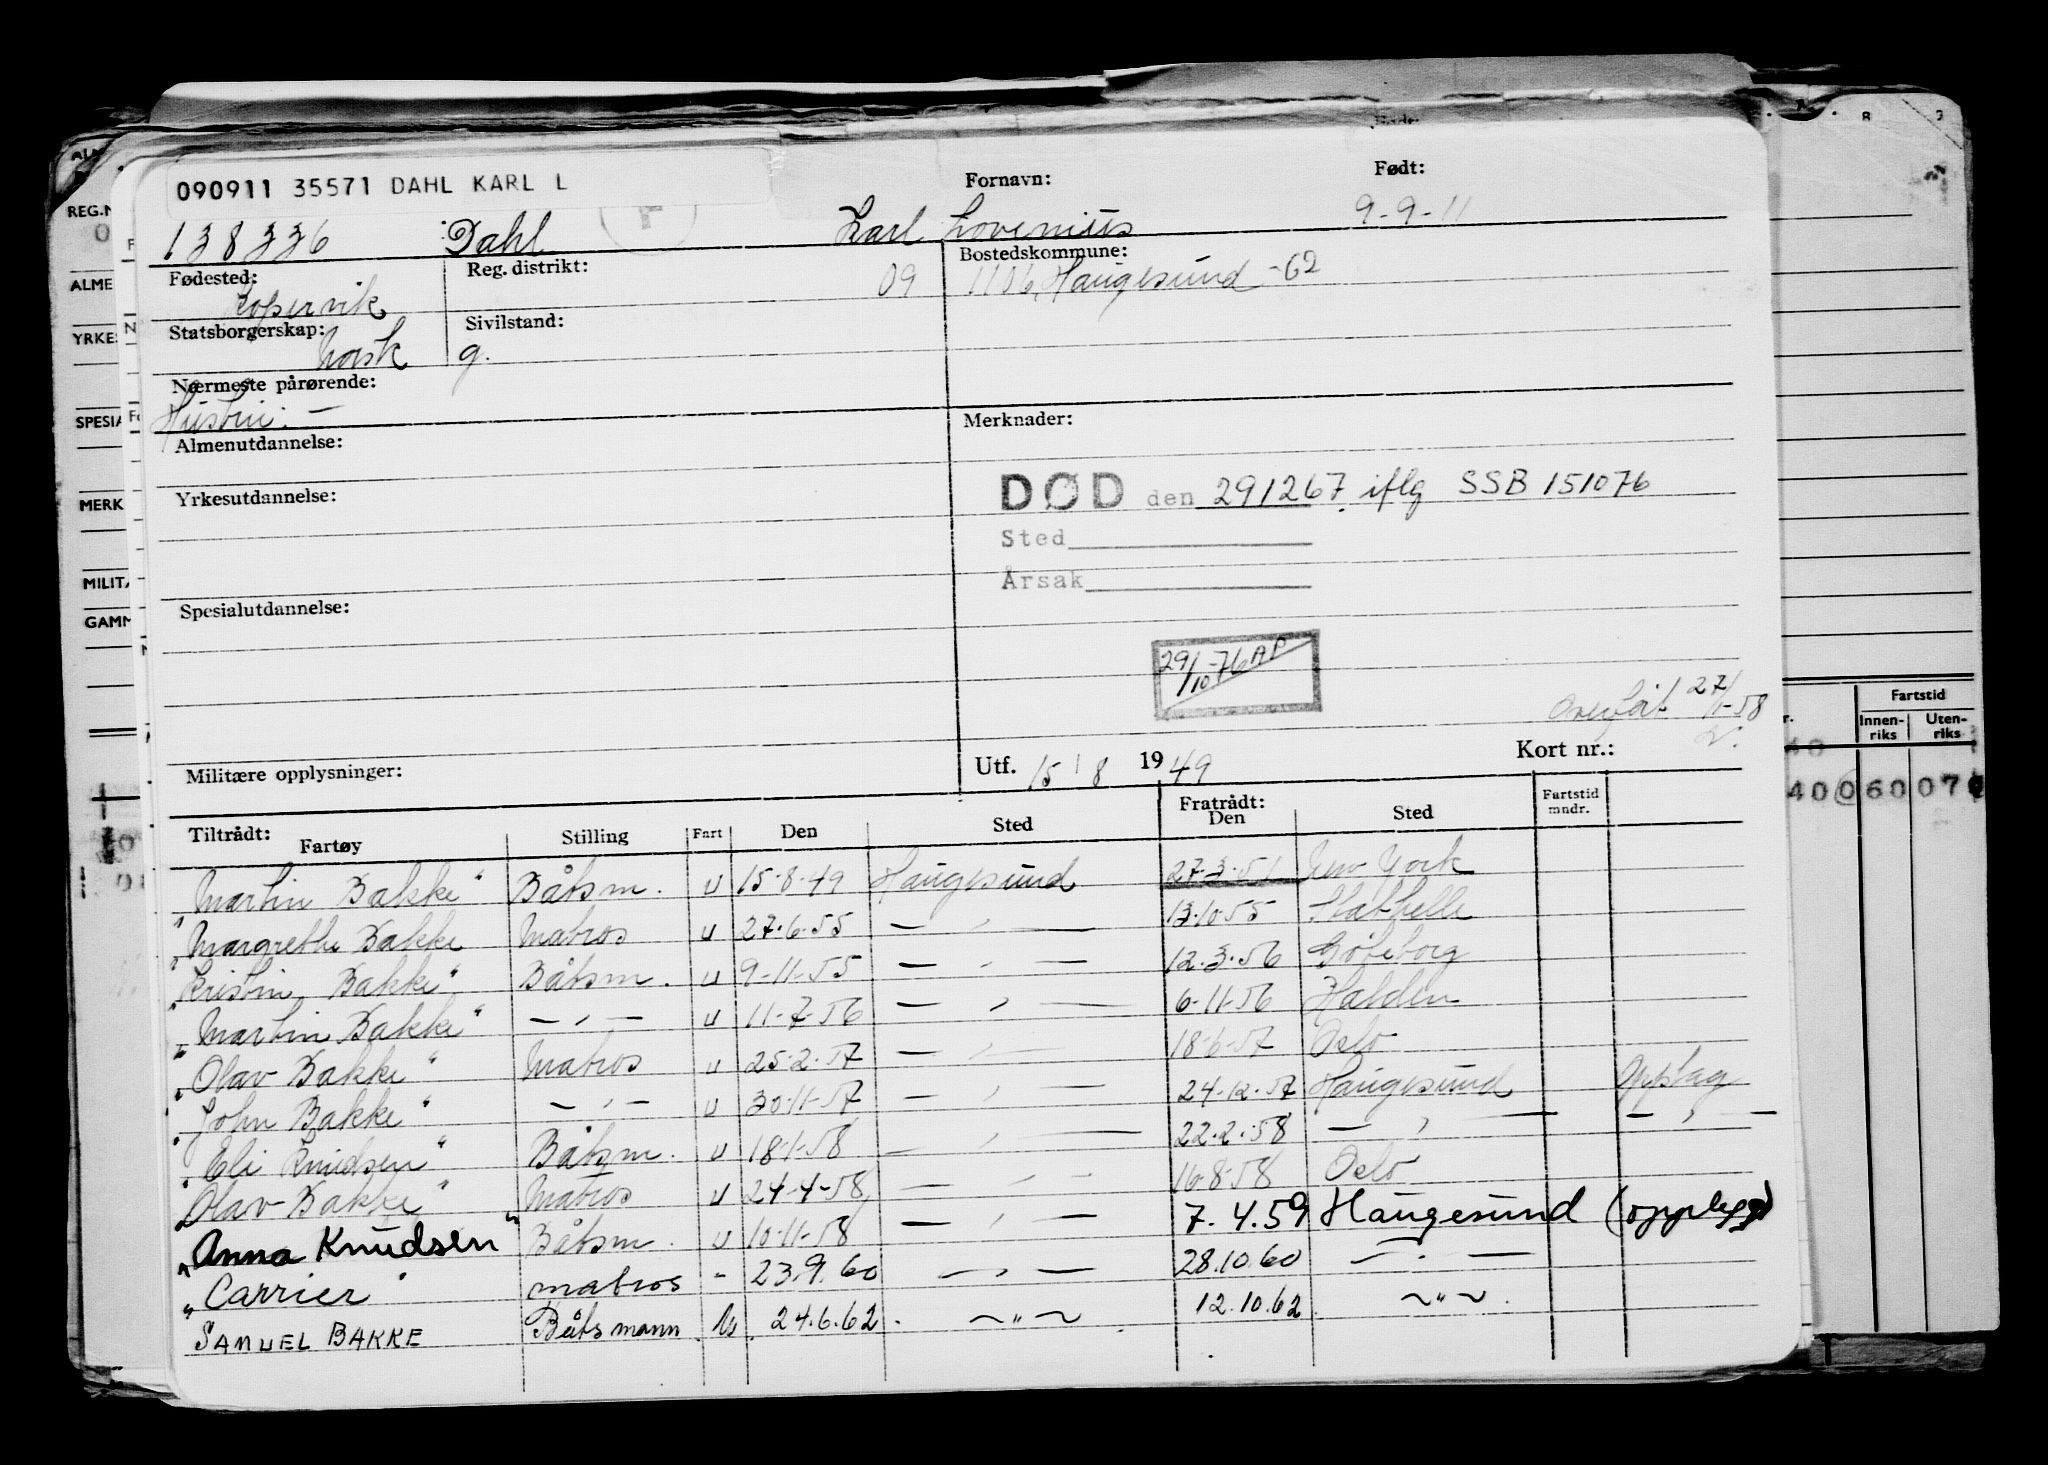 090911 35571 DAHL KARL L
Fornavn: Født:
138336 Dahl Karl Lovenius 9-9-11
Fødested: Reg. distrikt: 09 Bostedskommune:
Kopervik 1106, Haugesund -62
Statsborgerskap: Sivilstand:
Norsk g.
Nærmeste pårørende:
Hustru: —
Almenutdannelse: Merknader:
Yrkesutdannelse: DØD den 291267 iflg SSB 151076
Sted
Årsak
Spesialutdannelse:
29/10-76 AP
Overført 27/1-58
Militære opplysninger: Utf. 15/8 1949 Kort nr.:
Tiltrådt: Fratrådt: Fartstid mndr.
Fartøy Stilling Fart Den Sted Den Sted
"Martin Bakke" Båtsm. u 15-8-49 Haugesund 27-3-51 New York
"Margrethe Bakke Matros u 27-6-55 — " — 13-10-55 Stathelle
"Kristin Bakke" Båtsm. u 9-11-55 — " — 12-3-56 Gøteborg
"Martin Bakke" — " — u 11-7-56 — " — 6-11-56 Halden
"Olav Bakke" Matros u 25-2-57 — " — 18-6-57 Oslo
"John Bakke" — " — u 30-11-57 — " — 24-12-57 Haugesund Opplag
"Eli Knudsen" Båtsm. u 18-1-58 — " — 22-2-58 — " — — " —
"Olav Bakke" Matros u 24-4-58 — " — 16-8-58 Oslo
"Anna Knudsen" Båtsm. u 10-11-58 — " — 7.4.59 Haugesund (opplegg)
"Carrier" matros - 23.9.60 — " — 28.10.60 — " —
SAMUEL BAKKE Båtsmann. U. 24.6.62. ~ " ~ 12.10.62. ~ " ~.
REG.N
ALME
YRKES
SPESIA
MERK
MILITÆ
GAMM
Fartstid
Innen-riks Uten-riks
40 0 60 07